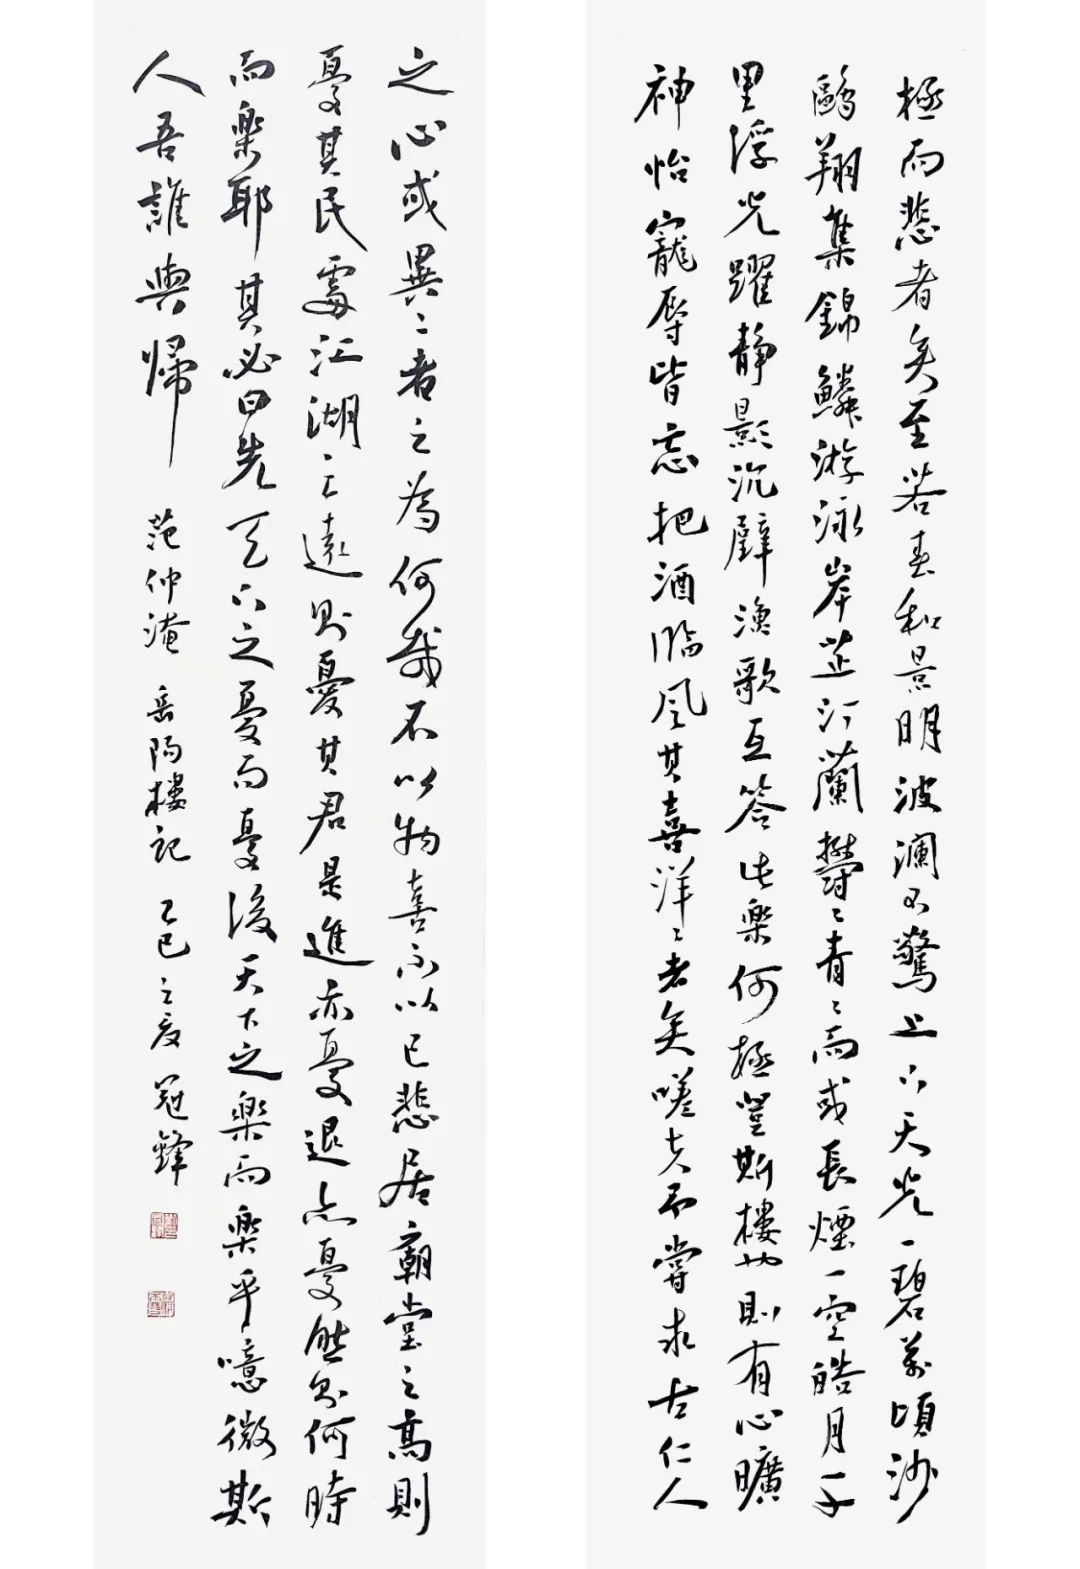 極而悲者矣至若春和景明波瀾不驚上下天光一碧萬頃沙
鷗翔集錦鱗游泳岸芷汀蘭鬱〻青〻而或長煙一空皓月千
里浮光躍静影沉璧漁歌互答此樂何極登斯樓也則有心曠
神怡寵辱皆忘把酒臨風其喜洋〻者矣嗟夫予嘗求古仁人
之心或異二者之為何哉不以物喜不以己悲居廟堂之高則
憂其民處江湖之遠則憂其君是進亦憂退亦憂然則何時
而樂耶其必曰先天下之憂而憂後天下之樂而樂乎噫微斯
人吾誰與歸 范仲淹 岳陽樓記 乙巳之夏 冠鋒